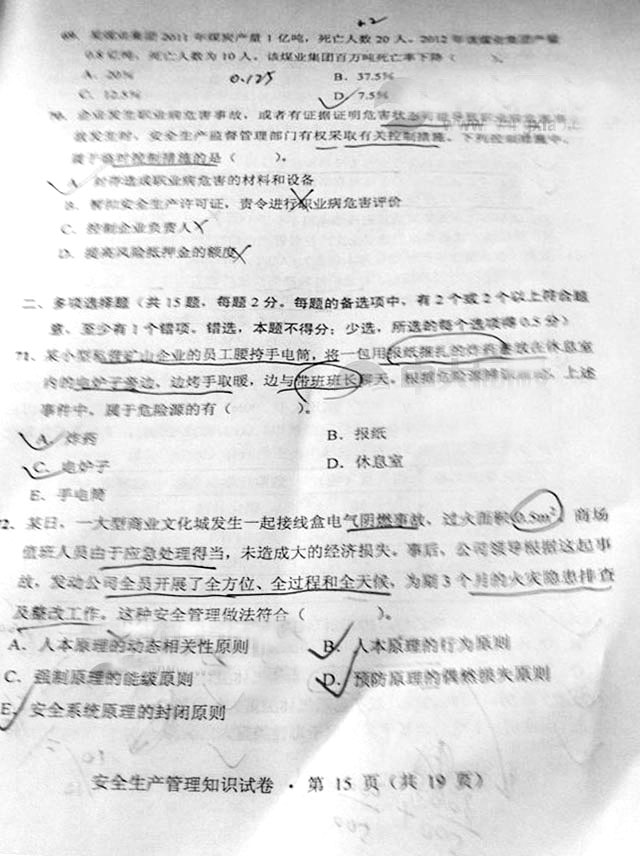 +2
69、某煤业集团 2011 年煤炭产量 1 亿吨,死亡人数 20 人。2012 年该煤业集团产量
0.8 亿吨,死亡人数为 10 人。该煤业集团百万吨死亡率下降( )。
A. 20% B. 37.5%
0.125
C. 12.5% D. 7.5%
70、企业发生职业病危害事故,或者有证据证明危害状态可能导致职业病危害事
故发生时,安全生产监督管理部门有权采取有关控制措施。下列控制措施中,
属于临时控制措施的是( )。
A. 封存造成职业病危害的材料和设备
B. 暂扣安全生产许可证,责令进行职业病危害评价
C. 控制企业负责人
D. 提高风险抵押金的额度
二、多项选择题(共 15 题,每题 2 分。每题的备选项中,有 2 个或 2 个以上符合题
意,至少有 1 个错项。错选,本题不得分;少选,所选的每个选项得 0.5 分)
71、某小型私营矿山企业的员工腰挎手电筒,将一包用报纸捆扎的炸药放在休息室
内的电炉子旁边,边烤手取暖,边与带班班长聊天。根据危险源辨识 上述
事件中,属于危险源的有( )。
A. 炸药 B. 报纸
C. 电炉子 D. 休息室
E. 手电筒
72、某日,一大型商业文化城发生一起接线盒电气阴燃事故,过火面积 0.5m²,商场
值班人员由于应急处理得当,未造成大的经济损失。事后,公司领导根据这起事
故,发动公司全员开展了全方位、全过程和全天候,为期 3 个月的火灾隐患排查
及整改工作。这种安全管理做法符合( )。
A. 人本原理的动态相关性原则 B. 人本原理的行为原则
C. 强制原理的能级原则 D. 预防原理的偶然损失原则
E. 安全系统原理的封闭原则
安全生产管理知识试卷 · 第 15 页(共 19 页)